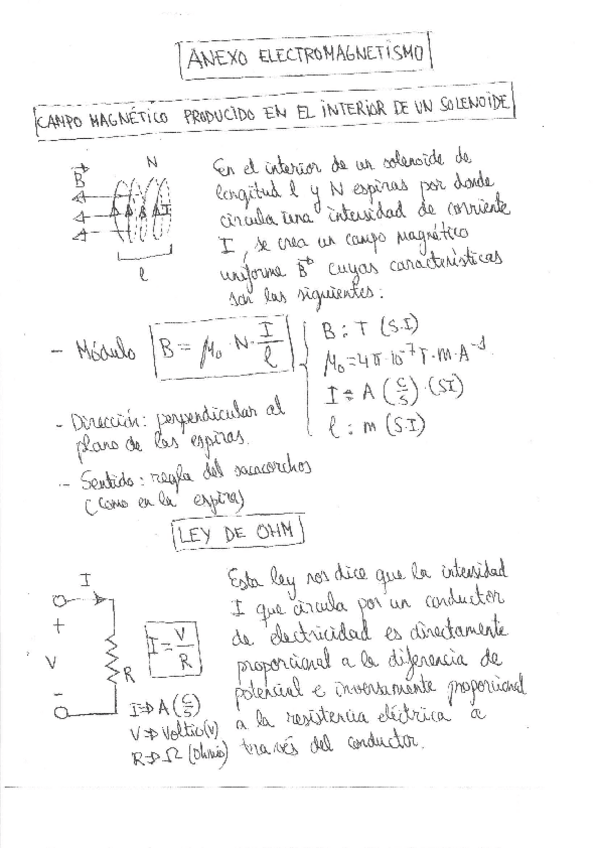 ANEXO ELECTROMAGNETISMO
CAMPO MAGNÉTICO PRODUCIDO EN EL INTERIOR DE UN SOLENOIDE
B⃗
N
I
l
En el interior de un solenoide de
longitud l y N espiras por donde
circula una intensidad de corriente
I, se crea un campo magnético
uniforme B⃗ cuyas características
son las siguientes:
- Módulo B = μ₀ · N · I/l
B: T (S.I)
μ₀ = 4π·10⁻⁷ T·m·A⁻¹
I = A (C/S) (SI)
l: m (S.I)
- Dirección: perpendicular al
plano de las espiras.
- Sentido: regla del sacacorchos
(como en la espira)
LEY DE OHM
I
+
V
-
R
I = V/R
I ⇒ A (C/S)
V ⇒ Voltio (V)
R ⇒ Ω (Ohmio)
Esta ley nos dice que la intensidad
I que circula por un conductor
de electricidad es directamente
proporcional a la diferencia de
potencial e inversamente proporcional
a la resistencia eléctrica a
través del conductor.